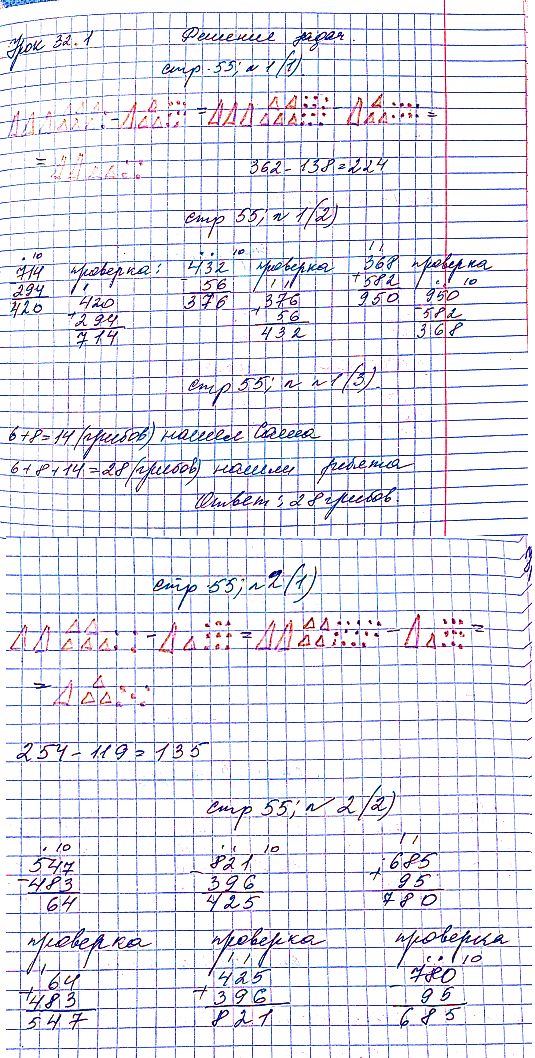 Урок 32.1 Решение задач.
стр. 55; № 1(1).
- = - =
=
362 - 138 = 224
стр 55; № 1(2)
714 проверка: 432 проверка 368 проверка
- 294 420 - 56 376 + 582 950
420 + 294 376 + 56 950 - 582
714 432 368
стр 55; № 1(3)
6+8=14 (грибов) нашел Саша
6+8+14=28 (грибов) нашли ребята
Ответ: 28 грибов.
стр 55; № 2(1)
- = - =
=
254 - 119 = 135
стр 55; № 2(2)
547 821 685
- 483 - 396 + 95
64 425 780
проверка проверка проверка
64 425 780
+ 483 + 396 - 95
547 821 685